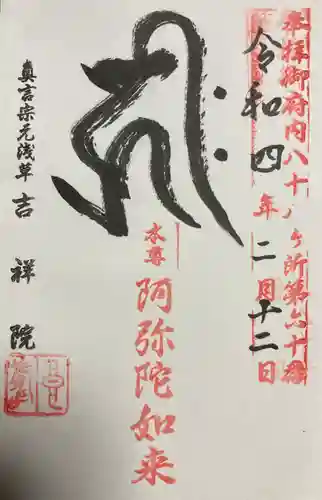 奉拝御府内八十八ヶ所第六十番
令和四年二月十二日
キリーク
本尊
阿弥陀如来
真言宗元浅草
吉祥院